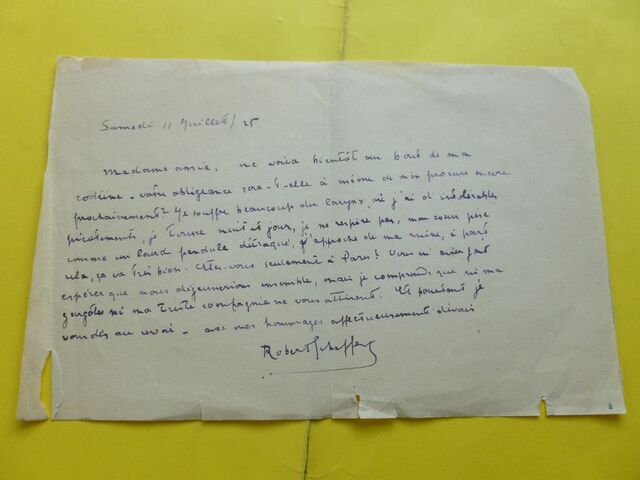 Samedi 11 Juillet / 25
Madame amie, me voila bientôt au bout de ma
codéine - votre obligeance sera-t-elle à même de m'en procurer encore
prochainement? Je souffre beaucoup du larynx où j'ai d'intolérables
picotements, je tousse nuit et jour, je ne respire pas, mon coeur pèse
comme un lourd pendule détraqué, j'approche de ma ruine, à part
cela, ça va très bien. Etes-vous seulement à Paris? Vous m'aviez fait
espérer que nous déjeunerions ensemble, mais je comprends que ni ma
gargote ni ma triste compagnie ne vous attirent. Et pourtant je
vous dis au revoir - avec mes hommages affectueusement dévoués
Robert Scheffer